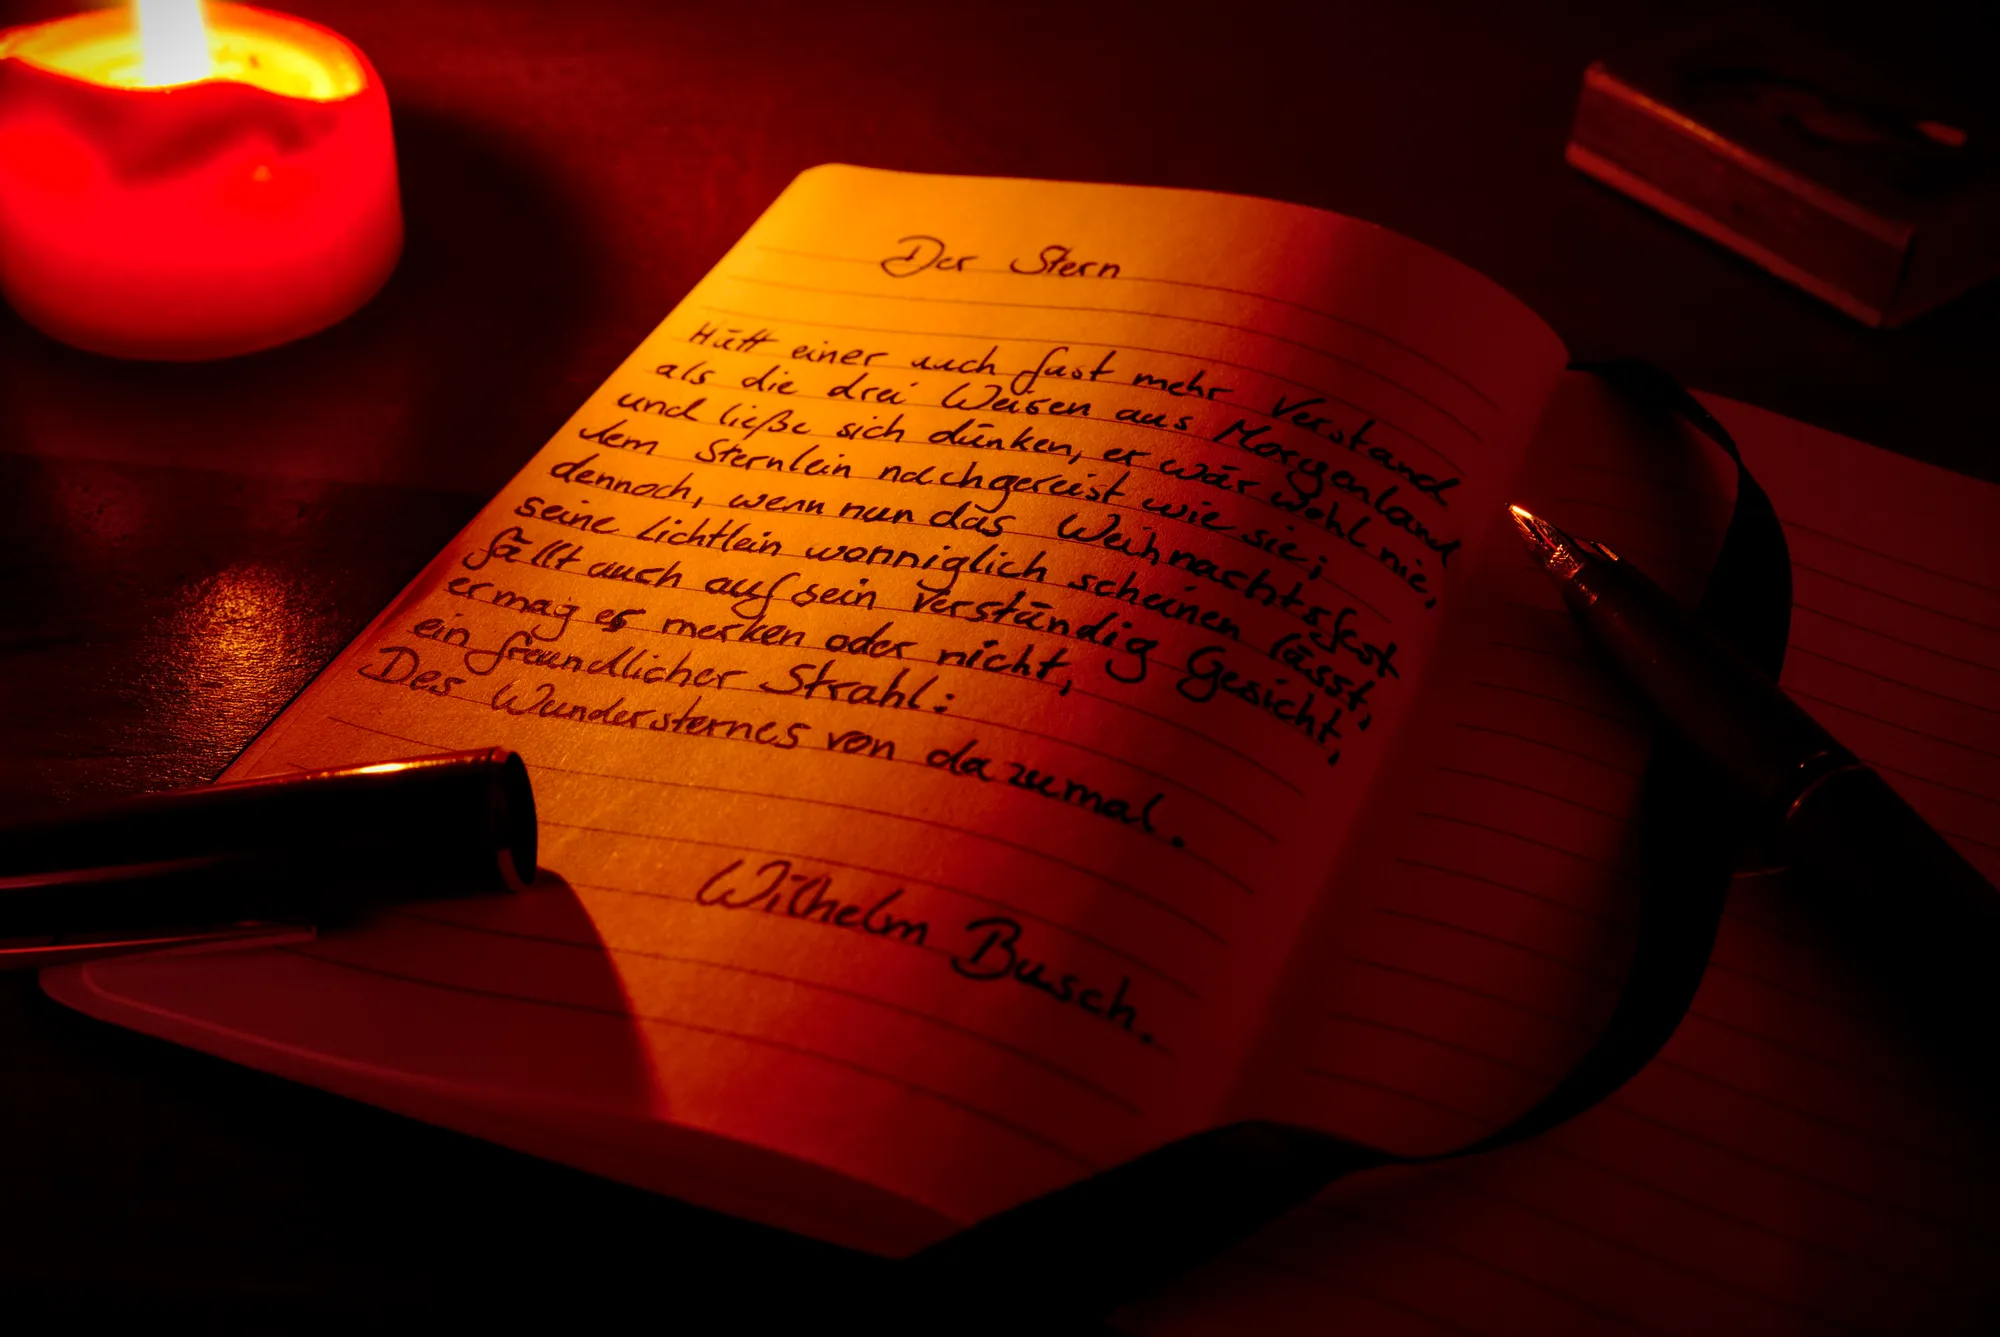 Der Stern
Hätt einer auch fast mehr Verstand
als die drei Weisen aus Morgenland
und ließe sich dünken, er wär wohl nie,
dem Sternlein nachgereist wie sie;
dennoch, wenn nun das Weihnachtsfest
seine Lichtlein wonniglich scheinen lässt,
fällt auch auf sein verständig Gesicht,
er mag es merken oder nicht,
ein freundlicher Strahl:
Des Wundersternes von dazumal.
Wilhelm Busch.